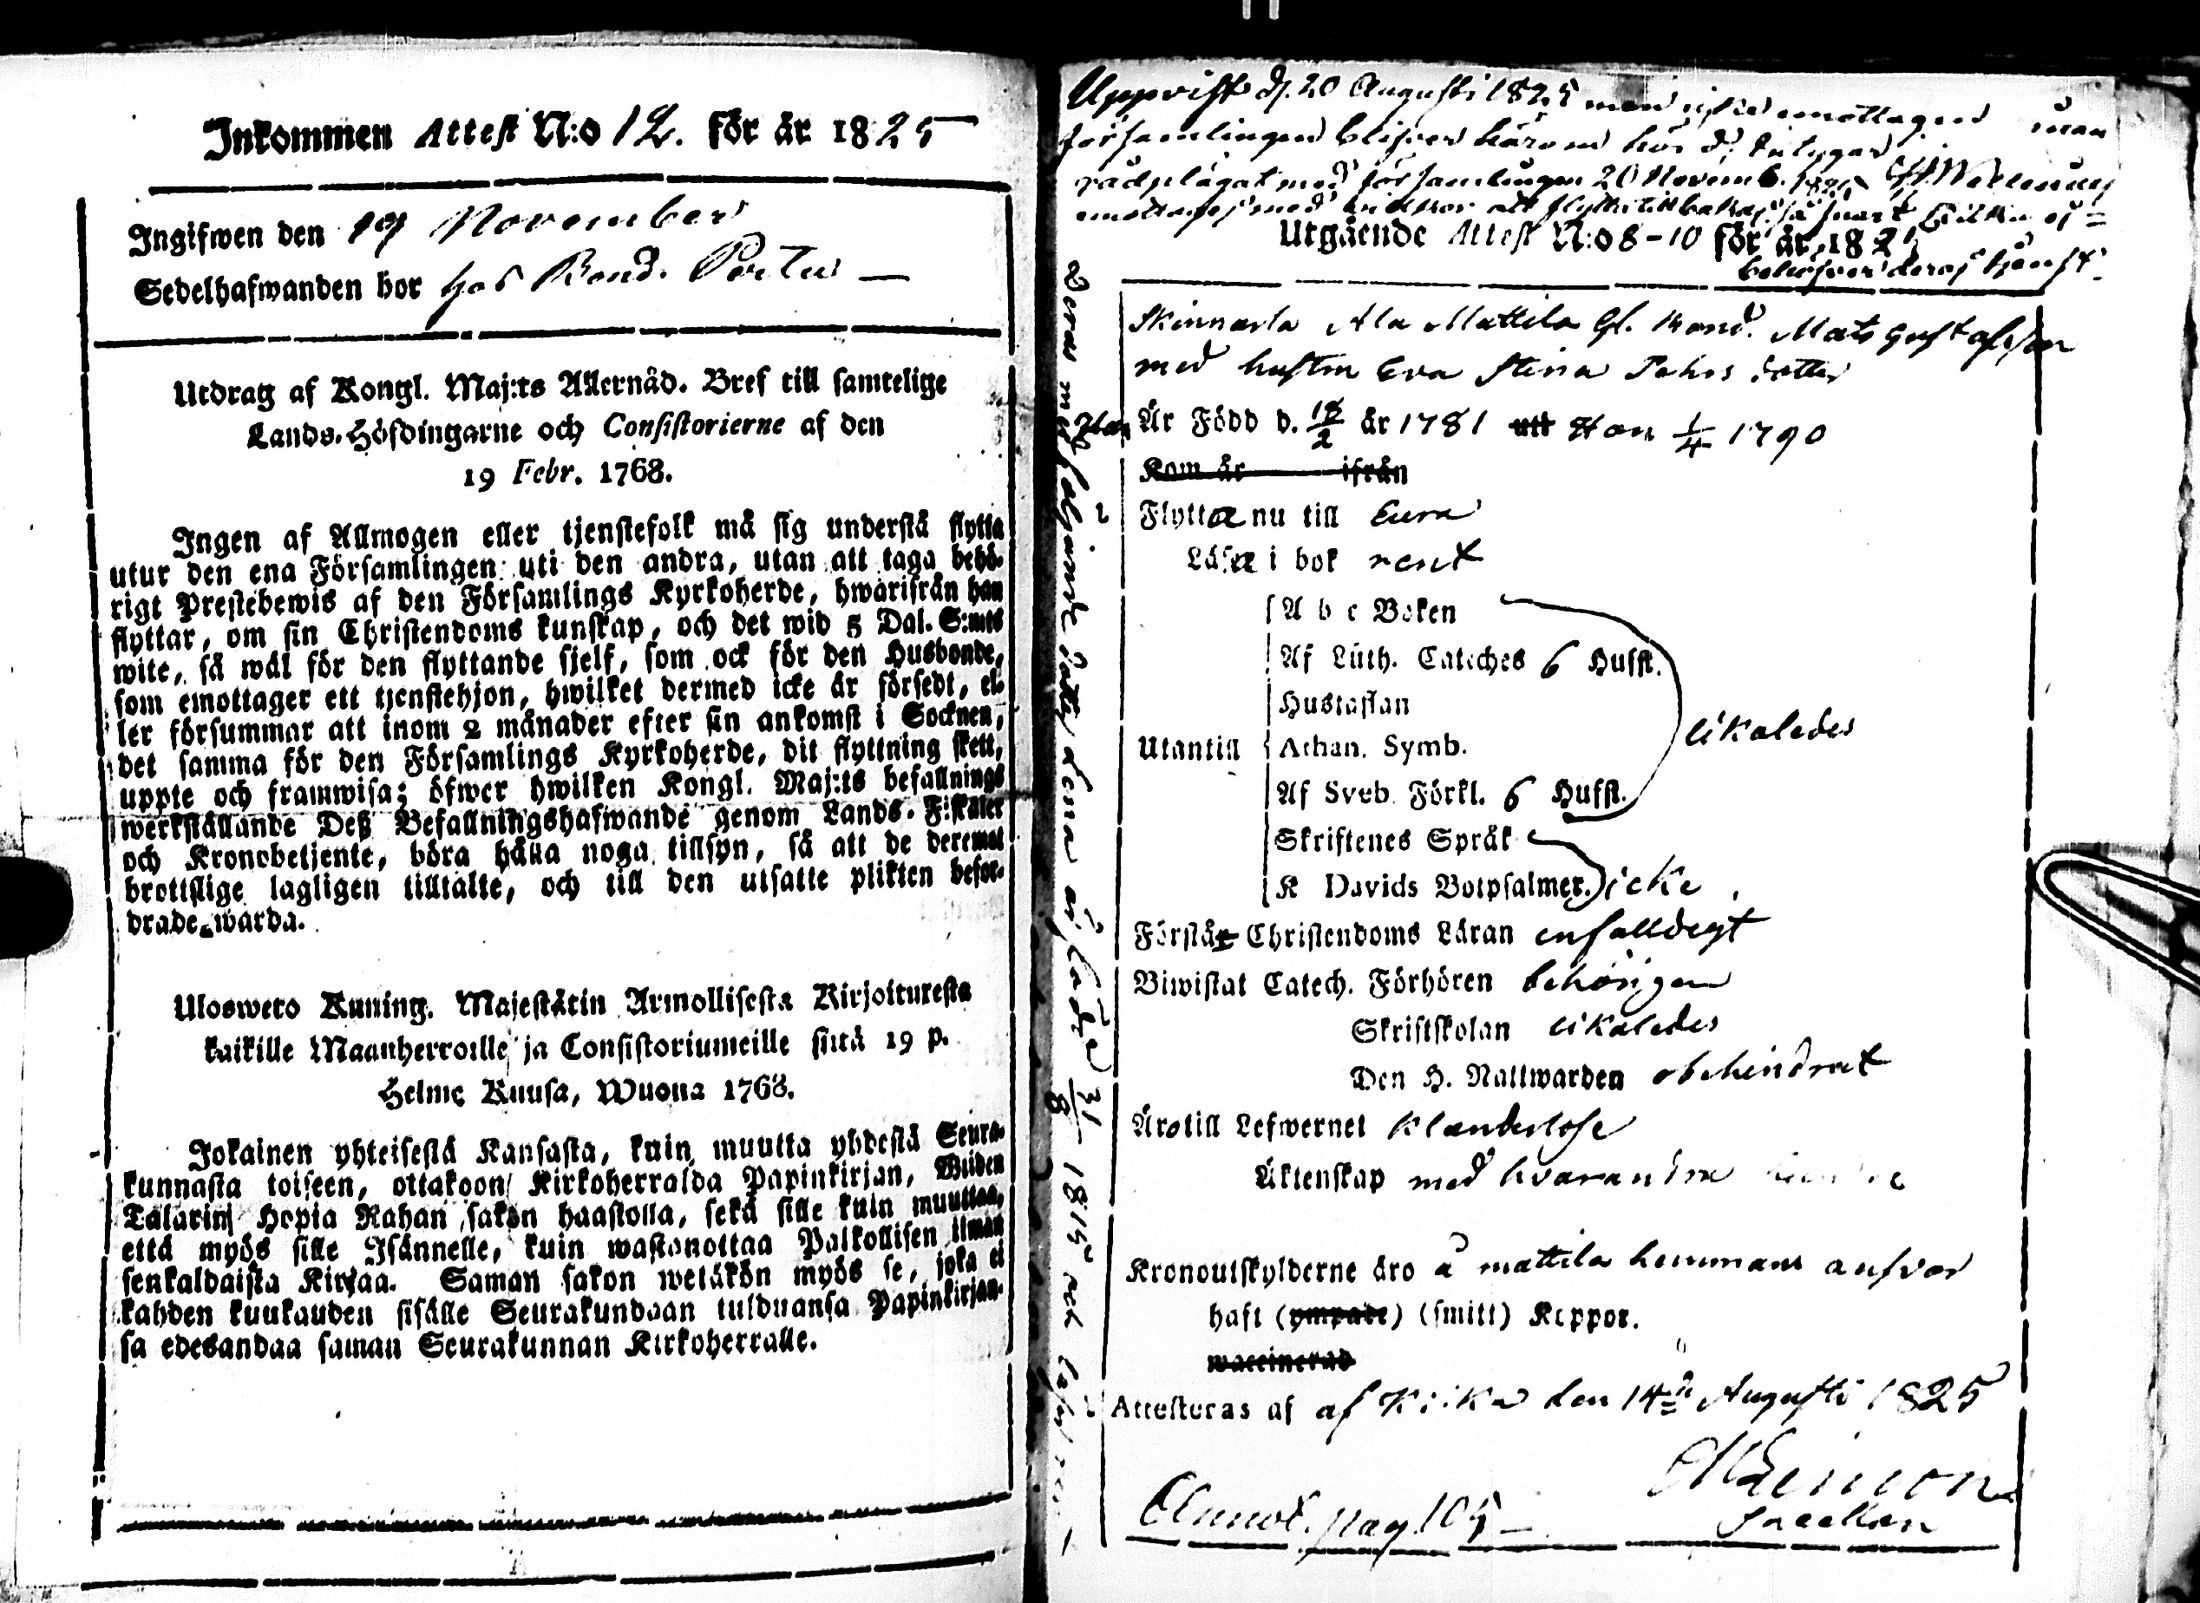 Inkommen Attest N:o 12. för år 1825
Ingifwen den 19 November
Sedelhafwanden bor hos Bond. Pertu
Utdrag af Kongl. Maj:ts Allernåd. Bref till samtelige
Lands-Höfdingarne och Consistorierne af den
19 Febr. 1768.
Ingen af Allmogen eller tjenstefolk må sig understå flytta
utur den ena Församlingen uti den andra, utan att taga behö-
rigt Prestebewis af den Församlings Kyrkoherde, hwarifrån han
flyttar, om sin Christendoms kunskap, och det wid 5 Dal. S:mts
wite, så wäl för den flyttande sjelf, som ock för den Husbonde,
som emottager ett tjenstehjon, hwilket dermed icke är försedt, el-
ler försummar att inom 2 månader efter sin ankomst i Socknen,
det samma för den Församlings Kyrkoherde, dit flyttning skett,
uppte och framwisa; öfwer hwilken Kongl. Maj:ts befallnings
werkställande Deß Befallningshafwande genom Lands-Fiskaler
och Kronobetjente, böra hålla noga tillsyn, så att de deremot
brottslige lagligen tilltalte, och till den utsatte plikten befor-
drade warda.
Ulosweto Kuning. Majestätin Armollisesta Kirjoituresta
kaikille Maanherroille ja Consistoriumeille siitä 19 p.
Helme Kuusa, Wuona 1768.
Jokainen yhteisestä Kansasta, kuin muutta yhdestä Seura-
kunnasta toiseen, ottakoon Kirkoherralda Papinkirjan, Wiiden
Talarinj Hopia Rahan sakon haastolla, sekä sille kuin muuttaa,
että myös sille Isännelle, kuin wastanottaa Palkollisen ilman
senkaldaista Kirjaa. Saman sakon wetäkön myös se, joka ei
kahden kuukauden sisälle Seurakundaan tulduansa Papinkirjan-
sa edesandaa saman Seurakunnan Kirkoherralle.
Uppvist d. 20 Augusti 1825 men icke emottagen man
församlingen blifver härom hörd, intygar
rådplägat med församlingen 20 Novemb. 1825
emottages med vilkor att flytta tillbakas så snart
Utgående Attest N:o 8-10 för år 182
behöfver deras tjenst.
Skinnarla Ala Mattila Gl. Bond. Mats Gustafsson
med hustru Eva Stina Johns dotter
Han Är Född d. 18/2 år 1781 Hon 1/4 1790
Kom år ifrån
Flytta nu till Eura
Läsa i bok rent
A b c Boken
Af Luth. Catoches 6 Hufst.
Hustaflan
Utantill Athan. Symb. likaledes
Af Sveb. Förkl. 6 Hufst.
Skriftenes Språk
K Davids Botpsalmer. icke
Förstår Christendoms Läran enfalldigt
Biwistat Catech. Förhören behörigen
Skriftskolan likaledes
Den H. Nattwarden obehindrat
Äro till Lefwernet klanderlöse
Äktenskap med hvarandra
Kronoutskylderne äro å mattila hemmans ansvar
haft (ympade) (smitt) Koppor.
waccinerad
Attesteras af af Kiika den 14de Augusti 1825
Sacellan
pag. 105
Deras med följande dotter Lena är född 31/8 1815 och